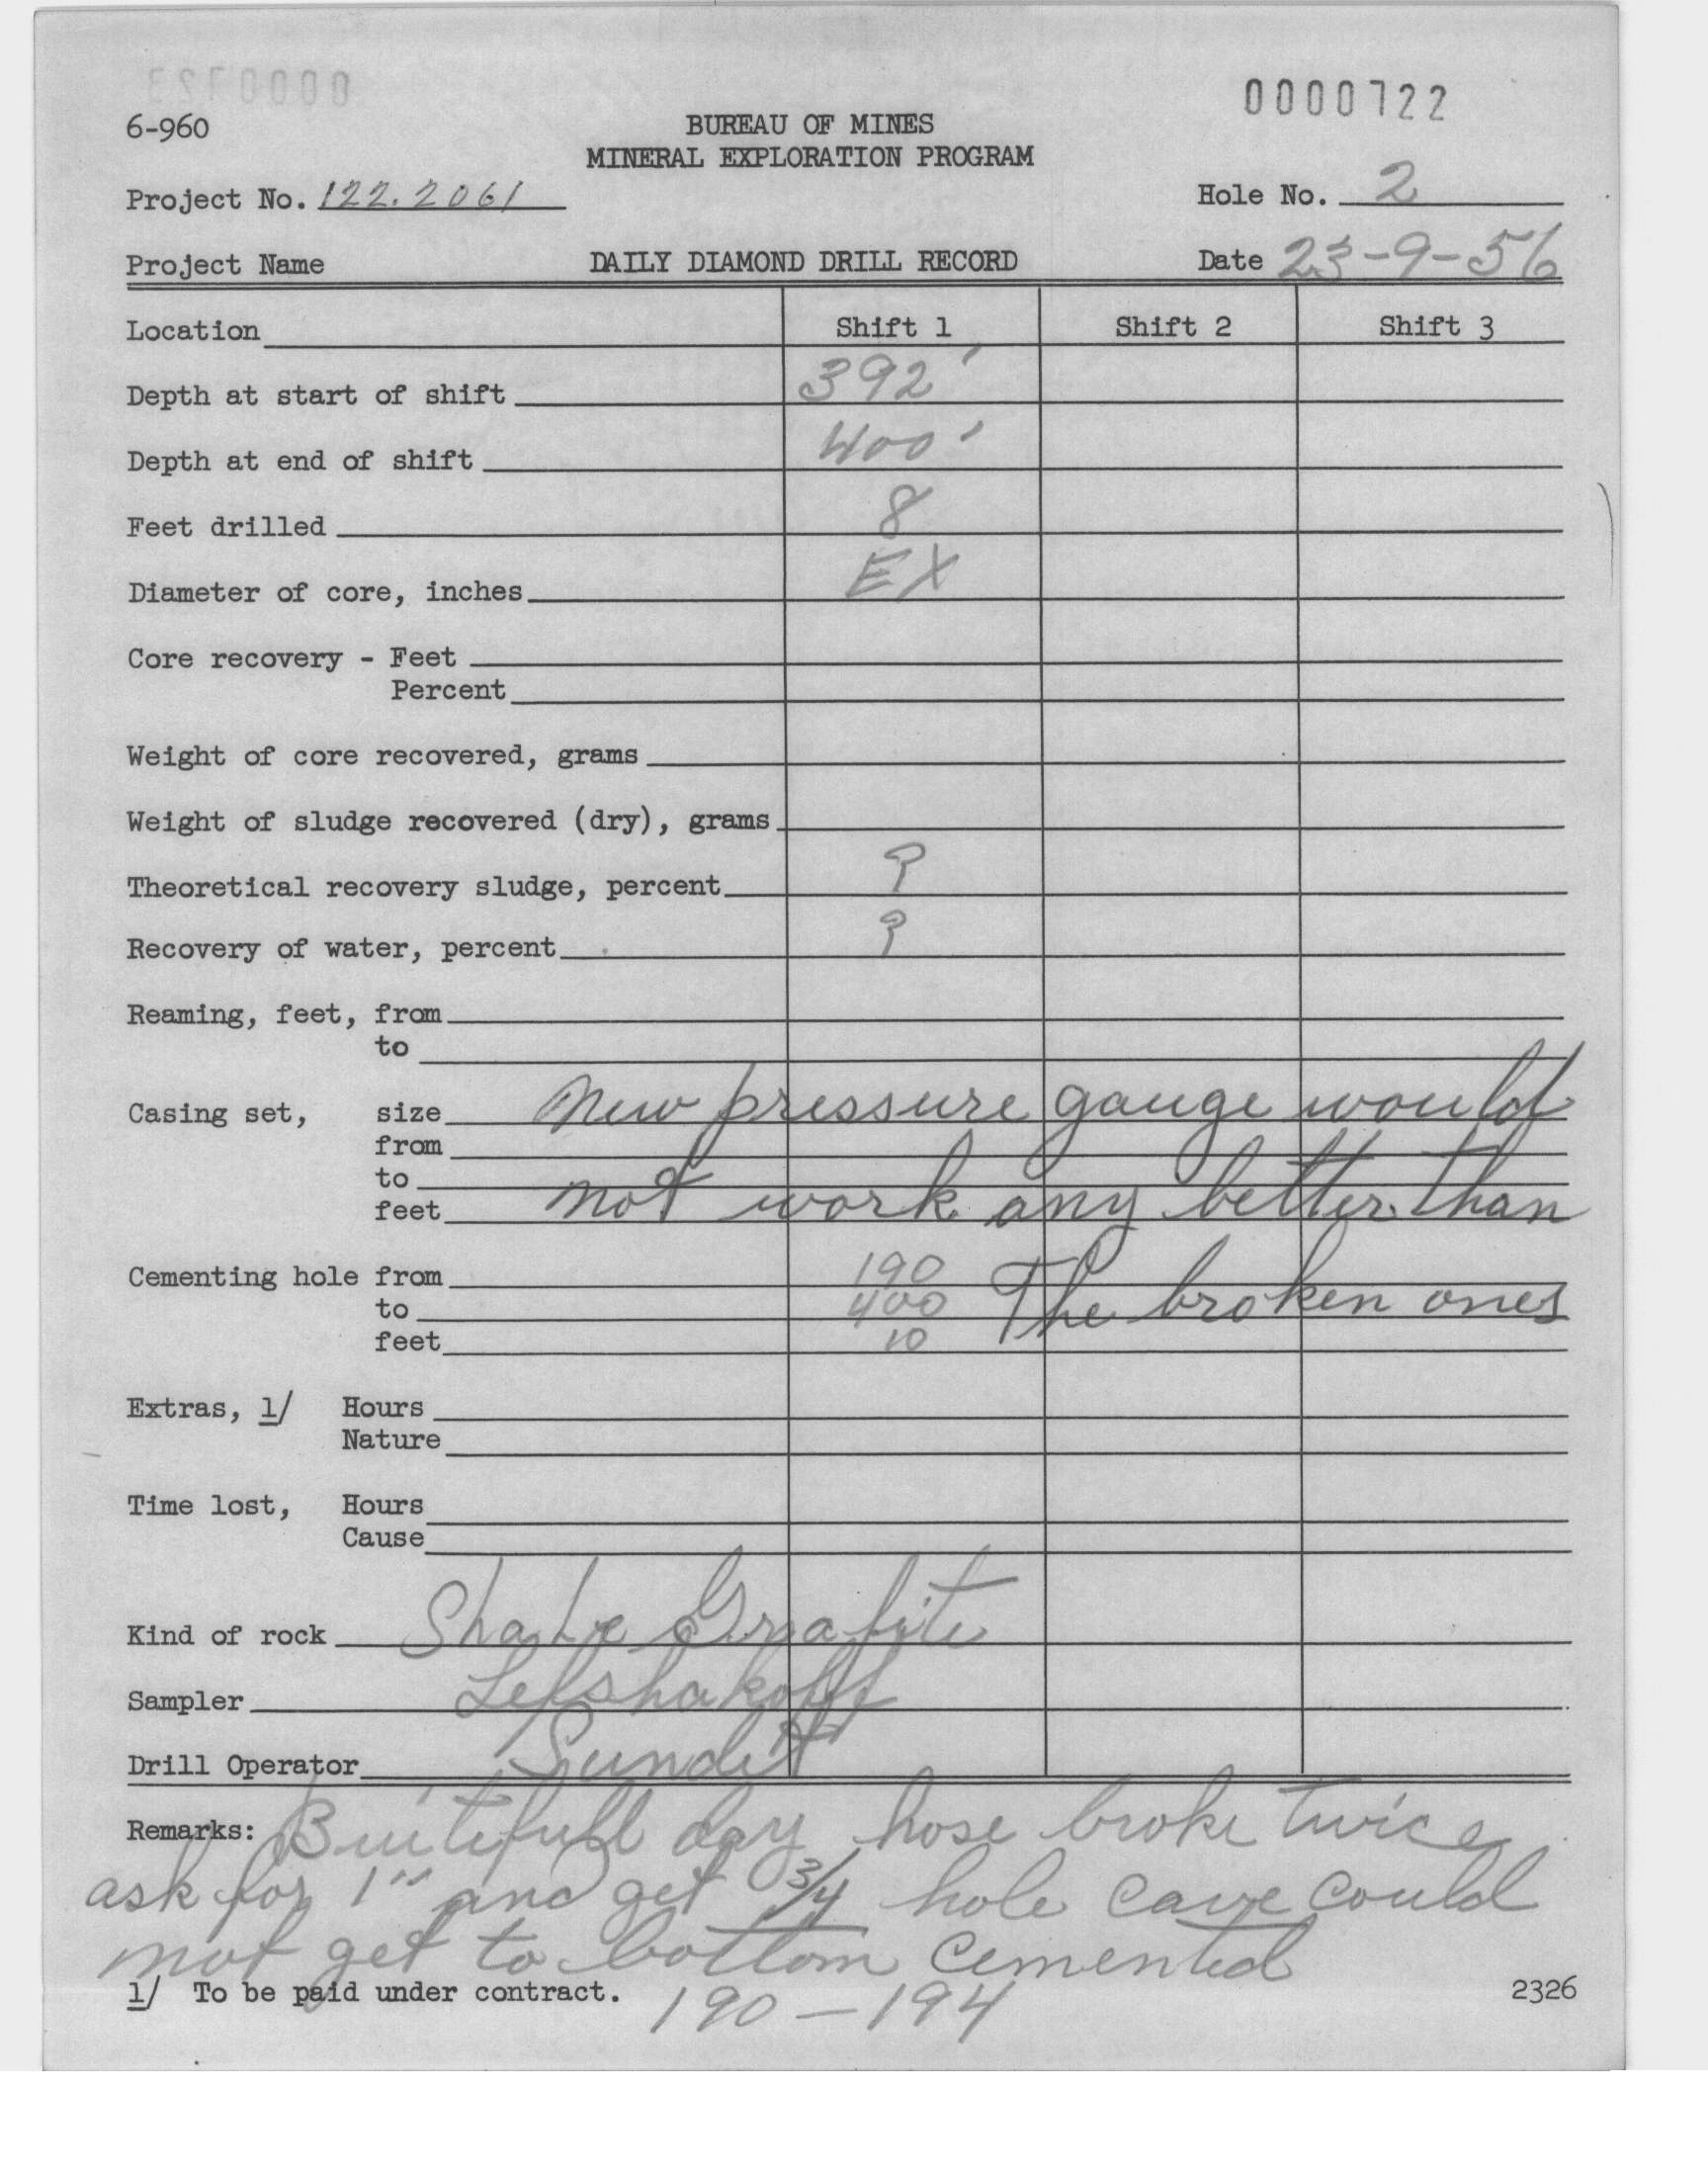 0000722
6-960
BUREAU OF MINES
MINERAL EXPLORATION PROGRAM
Project No. 122.2061
Hole No. 2
Project Name
DAILY DIAMOND DRILL RECORD
Date 23-9-56
Location Shift 1 Shift 2 Shift 3
Depth at start of shift 392'
Depth at end of shift 400'
Feet drilled 8
Diameter of core, inches EX
Core recovery - Feet
Percent
Weight of core recovered, grams
Weight of sludge recovered (dry), grams
Theoretical recovery sludge, percent ?
Recovery of water, percent ?
Reaming, feet, from
to
Casing set, size New pressure gauge would
from
to
feet not work any better than
Cementing hole from 190
to 400 The broken ones
feet 10
Extras, 1/ Hours
Nature
Time lost, Hours
Cause
Kind of rock Shale Grafite
Sampler Lefshakoff
Drill Operator
Remarks: Buitifull day hose broke twice
ask for 1" and get 3/4 hole cave could
not get to bottom cemented
1/ To be paid under contract. 190-194
2326